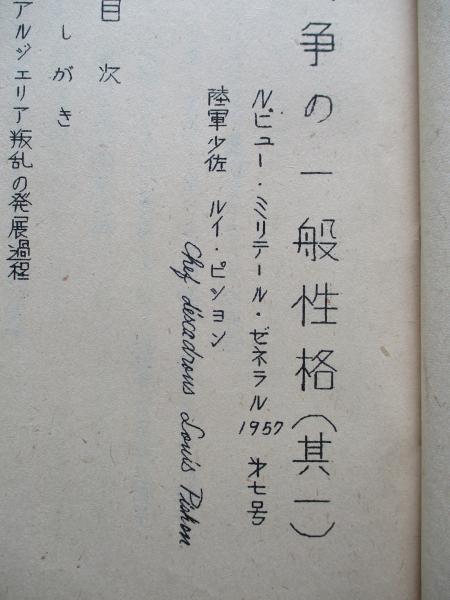 争の一般性格(其一)
ルビュー・ミリテール・ゼネラル 1957 才七号
陸軍少佐 ルイ・ピション
Chef d'escadrons Louis Pichon
目次
しがき
アルジェリア叛乱の発展過程